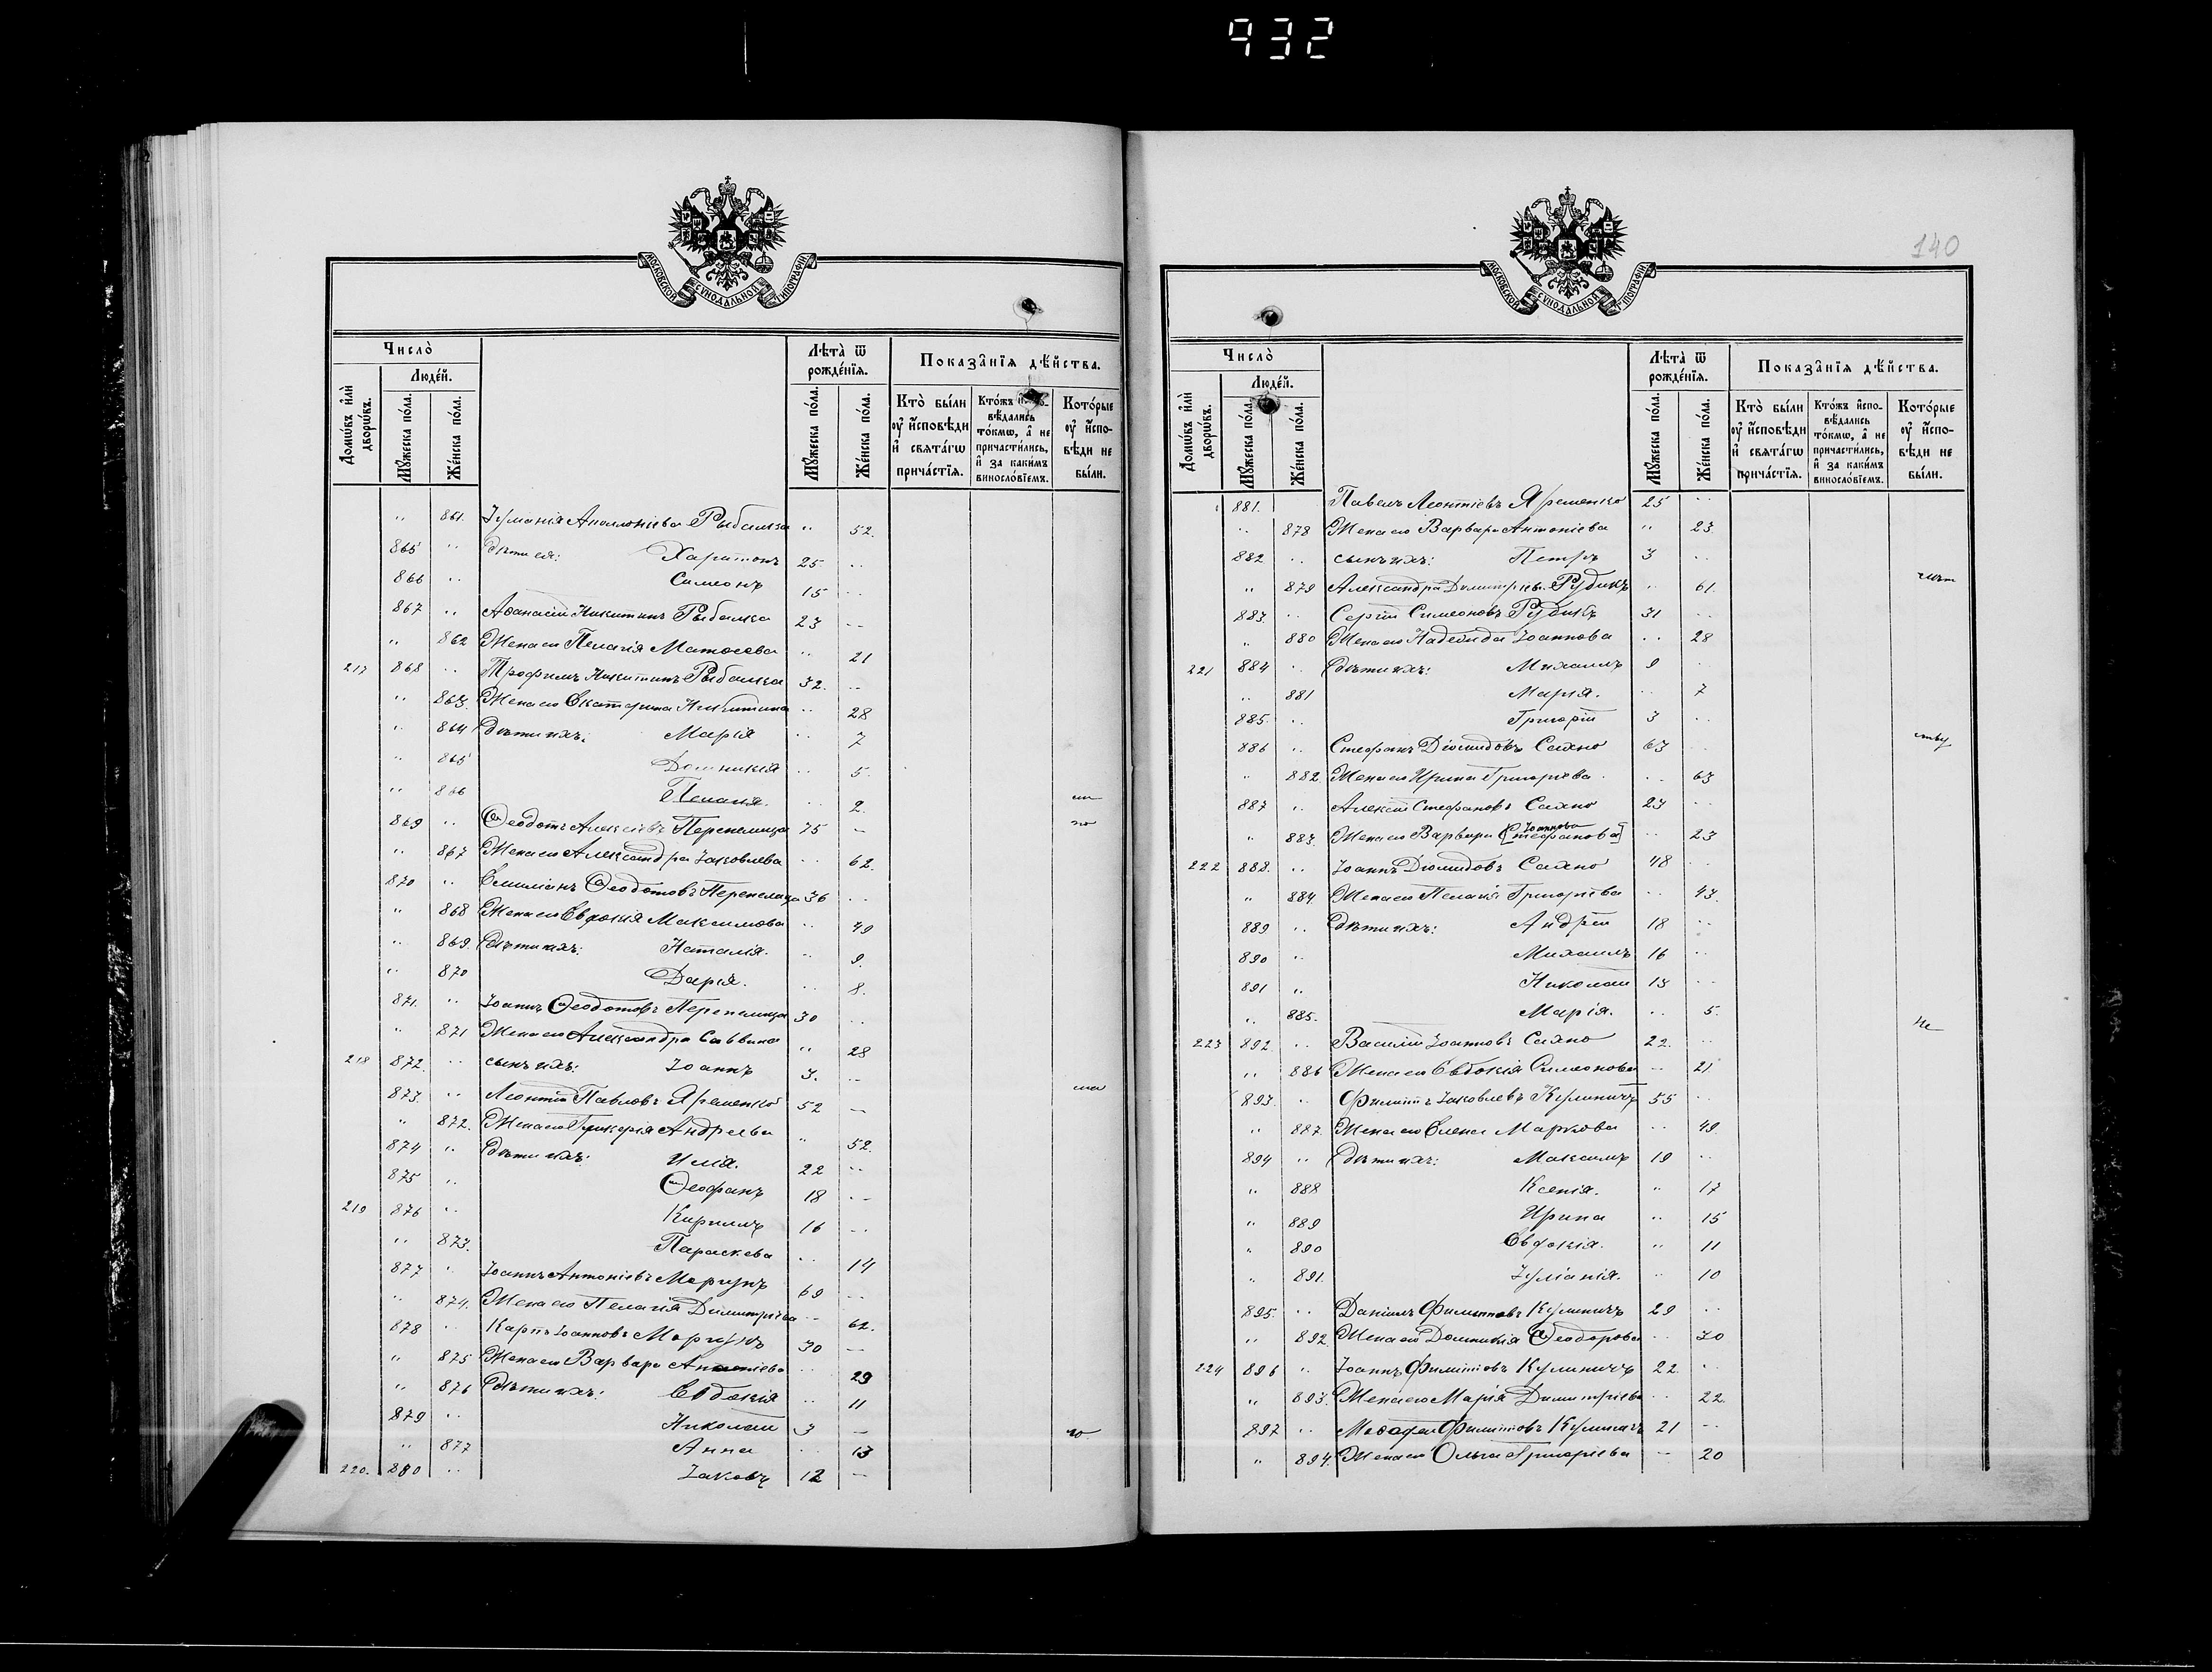 932
МОСКОВСКОЙ СУНОДАЛЬНОЙ ТИПОГРАФІИ
Число̀
Людéй.
Домѡ́въ и҆лѝ дворѡ́въ.
Мꙋ́жеска по́ла.
Же́нска по́ла.
Лѣта̀ ѿ рожде́нїѧ.
Мꙋ́жеска по́ла.
Же́нска по́ла.
Показа̑нїѧ дѣ́йства.
Кто̀ бы́ли оу҆ и҆́сповѣди и҆ свѧта́гѡ прича́стїѧ.
Кто́жъ и҆спо- вѣ́дались то́кмѡ, а҆ не причасти́лись, и҆ за каки́мъ винословїемъ.
Кото́рые оу҆ и҆спо- вѣди не бы́ли.
" 861. Іуліанія Аполлоніева Рыбалка " 52.
865 " Дѣти ея: Харитонъ 25 "
866 " Симеонъ 15 "
867 " Аѳанасій Никитинъ Рыбалка 23 "
" 862 Жена его Пелагія Матѳеева " 21
217 868 " Трофимъ Никитинъ Рыбалка 32. "
" 863. Жена его Екатерина Никитина " 28
" 864 Дѣти ихъ: Марія " 7
" 865 Домникія " 5.
" 866 Пелагія. " 2.
869 " Ѳеодотъ Алексѣевъ Перепелица 75 "
" 867 Жена его Александра Іаковлева " 62.
870 " Емиліанъ Ѳеодотовъ Перепелица 36 "
" 868 Жена его Евфокія Максимова " 49
" 869. Дѣти ихъ: Наталія. " 9.
" 870 Дарія. " 8.
871. " Іоаннъ Ѳеодотовъ Перепелица 30 "
" 871 Жена его Александра Саввина " 28
218 872. " сынъ ихъ: Іоаннъ 3. "
873. " Леонтій Павловъ Яременко 52 "
" 872. Жена его Гликерія Андреева " 52.
874 " Дѣти ихъ: Илія. 22 "
875 " Ѳеофанъ 18 "
219 876 " Кириллъ 16 "
" 873. Параскева " 14
877 " Іоаннъ Антоніевъ Моргунъ 69 "
" 874. Жена его Пелагія Димитріева " 62.
878 " Карпъ Іоанновъ Моргунъ 30 "
" 875 Жена его Варвара " 29
" 876 Дѣти ихъ: Евдокія " 11
879 " Николай 3 "
" 877 Анна " 13
220. 880 " Іаковъ 12 "
140
МОСКОВСКОЙ СУНОДАЛЬНОЙ ТИПОГРАФІИ
Число̀
Людéй.
Домѡ́въ и҆лѝ дворѡ́въ.
Мꙋ́жеска по́ла.
Же́нска по́ла.
Лѣта̀ ѿ рожде́нїѧ.
Мꙋ́жеска по́ла.
Же́нска по́ла.
Показа̑нїѧ дѣ́йства.
Кто̀ бы́ли оу҆ и҆́сповѣди и҆ свѧта́гѡ прича́стїѧ.
Кто́жъ и҆спо- вѣ́дались то́кмѡ, а҆ не причасти́лись, и҆ за каки́мъ винословїемъ.
Кото́рые оу҆ и҆спо- вѣди не бы́ли.
881. Павелъ Леонтіевъ Яременко 25 "
" 878 Жена его Варвара Антоніева " 23.
882 " сынъ ихъ: Петръ 3 "
" 879 Александра Димитріева Рудикъ " 61.
883. " Сергій Симеоновъ Рудикъ 31 "
" 880 Жена его Надежда Іоаннова " 28
221 884 " Дѣти ихъ: Михаилъ 9 "
" 881 Марія. " 7
885. " Григорій 3 "
886 " Стефанъ Діомидовъ Сахно 67 "
" 882. Жена его Ирина Григоріева " 63
887 " Алексій Стефановъ Сахно 23 "
" 883. Жена его Варвара [Стефанова] Іоаннова " 23
222 888. " Іоаннъ Діомидовъ Сахно 48 "
" 884. Жена его Пелагія Григоріева " 43.
889 " Дѣти ихъ: Андрей 18 "
890 " Михаилъ 16 "
891 " Николай 13 "
" 885. Марія. " 5.
не
223 892 " Василій Іоанновъ Сахно 22. "
" 886 Жена его Евдокія Симеонова " 21
893. " Филиппъ Іаковлевъ Кулиничъ 55 "
" 887. Жена его Елена Маркова " 49.
894 " Дѣти ихъ: Максимъ 19 "
" 888 Ксенія. " 17
" 889 Ирина " 15
" 890 Евфокія. " 11
" 891. Іуліанія. " 10
895. " Даніилъ Филипповъ Кулиничъ 29 "
" 892 Жена его Домникія Ѳеодорова " 30
224 896 " Іоаннъ Филипповъ Кулиничъ 22. "
" 893. Жена его Марія Димитріева " 22.
897 " Филипповъ Кулиничъ 21 "
" 894. Жена его Ольга Григоріева " 20